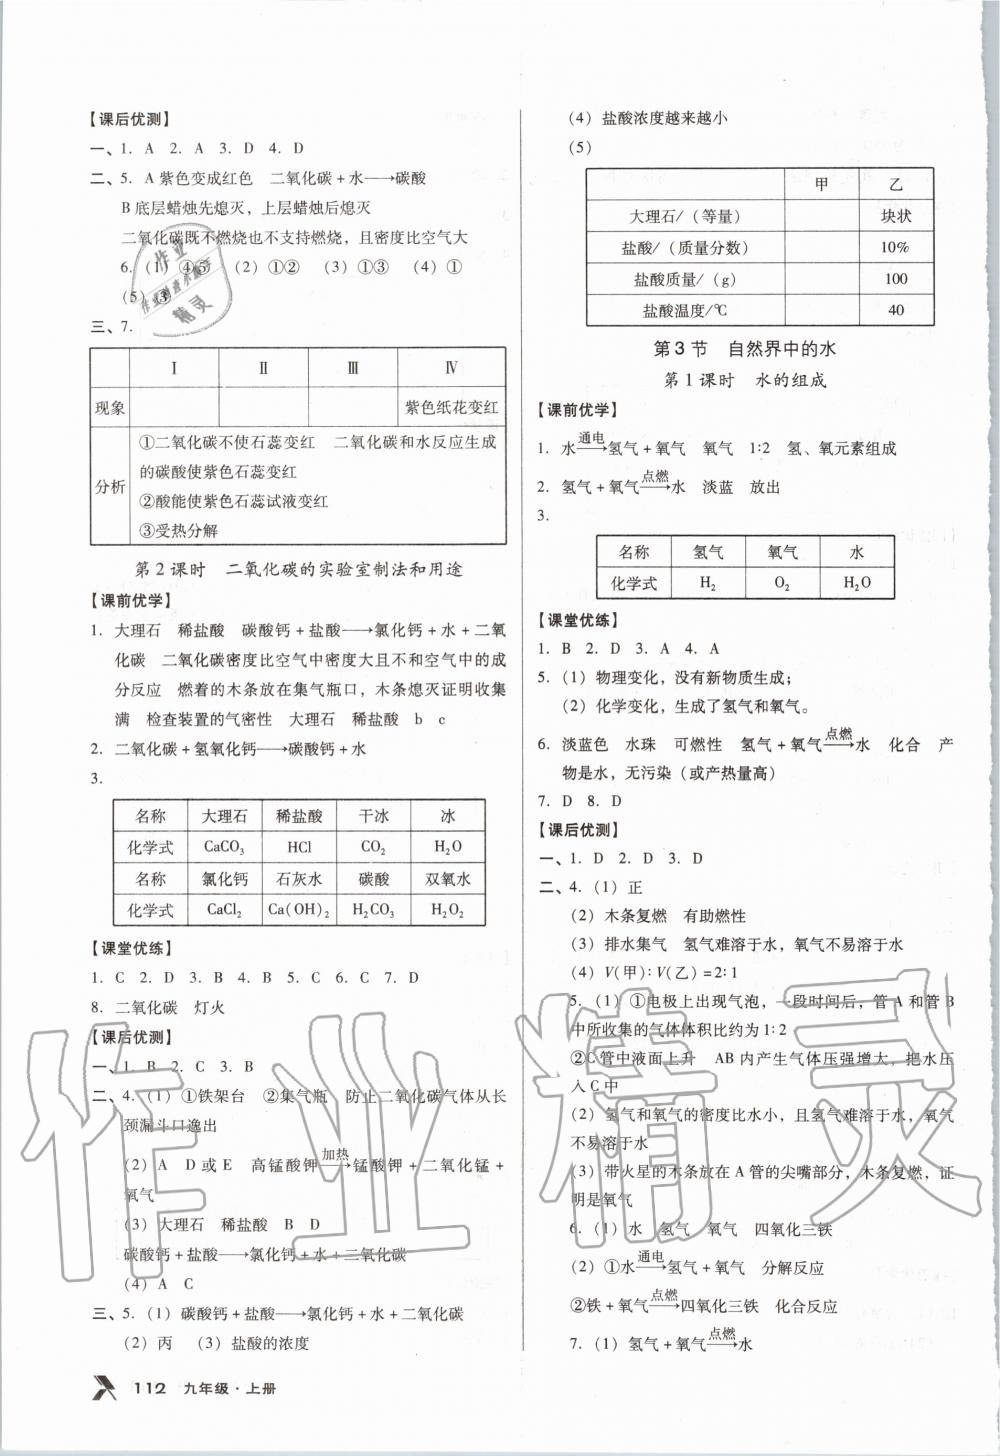 【课后优测】
一、1. A 2. A 3. D 4. D
二、5. A 紫色变成红色 二氧化碳+水⟶碳酸
B 底层蜡烛先熄灭，上层蜡烛后熄灭
二氧化碳既不燃烧也不支持燃烧，且密度比空气大
6. (1) ④⑤ (2) ①② (3) ①③ (4) ①
(5) ③
三、7.
Ⅰ Ⅱ Ⅲ Ⅳ
现象 紫色纸花变红
分析 ①二氧化碳不使石蕊变红 二氧化碳和水反应生成
的碳酸使紫色石蕊变红
②酸能使紫色石蕊试液变红
③受热分解
第2课时 二氧化碳的实验室制法和用途
【课前优学】
1. 大理石 稀盐酸 碳酸钙+盐酸⟶氯化钙+水+二氧
化碳 二氧化碳密度比空气中密度大且不和空气中的成
分反应 燃着的木条放在集气瓶口，木条熄灭证明收集
满 检查装置的气密性 大理石 稀盐酸 b c
2. 二氧化碳+氢氧化钙⟶碳酸钙+水
3.
名称 大理石 稀盐酸 干冰 冰
化学式 CaCO₃ HCl CO₂ H₂O
名称 氯化钙 石灰水 碳酸 双氧水
化学式 CaCl₂ Ca(OH)₂ H₂CO₃ H₂O₂
【课堂优练】
1. C 2. D 3. B 4. B 5. C 6. C 7. D
8. 二氧化碳 灯火
【课后优测】
一、1. B 2. C 3. B
二、4. (1) ①铁架台 ②集气瓶 防止二氧化碳气体从长
颈漏斗口逸出
(2) A D或E 高锰酸钾 加热⟶ 锰酸钾+二氧化锰+
氧气
(3) 大理石 稀盐酸 B D
碳酸钙+盐酸⟶氯化钙+水+二氧化碳
(4) A C
三、5. (1) 碳酸钙+盐酸⟶氯化钙+水+二氧化碳
(2) 丙 (3) 盐酸的浓度
112 九年级·上册
(4) 盐酸浓度越来越小
(5)
甲 乙
大理石/(等量) 块状
盐酸/(质量分数) 10%
盐酸质量/(g) 100
盐酸温度/℃ 40
第3节 自然界中的水
第1课时 水的组成
【课前优学】
1. 水 通电⟶ 氢气+氧气 氧气 1∶2 氢、氧元素组成
2. 氢气+氧气 点燃⟶ 水 淡蓝 放出
3.
名称 氢气 氧气 水
化学式 H₂ O₂ H₂O
【课堂优练】
1. B 2. D 3. A 4. A
5. (1) 物理变化，没有新物质生成；
(2) 化学变化，生成了氢气和氧气。
6. 淡蓝色 水珠 可燃性 氢气+氧气 点燃⟶ 水 化合 产
物是水，无污染(或产热量高)
7. D 8. D
【课后优测】
一、1. D 2. D 3. D
二、4. (1) 正
(2) 木条复燃 有助燃性
(3) 排水集气 氢气难溶于水，氧气不易溶于水
(4) V(甲)∶V(乙)=2∶1
5. (1) ①电极上出现气泡，一段时间后，管A和管B
中所收集的气体体积比约为1∶2
②C管中液面上升 AB内产生气体压强增大，把水压
入C中
(2) 氢气和氧气的密度比水小，且氢气难溶于水，氧气
不易溶于水
(3) 带火星的木条放在A管的尖嘴部分，木条复燃，证
明是氧气
6. (1) 水 氢气 氧气 四氧化三铁
(2) ①水 通电⟶ 氢气+氧气 分解反应
②铁+氧气 点燃⟶ 四氧化三铁 化合反应
7. (1) 氢气+氧气 点燃⟶ 水
作业精灵